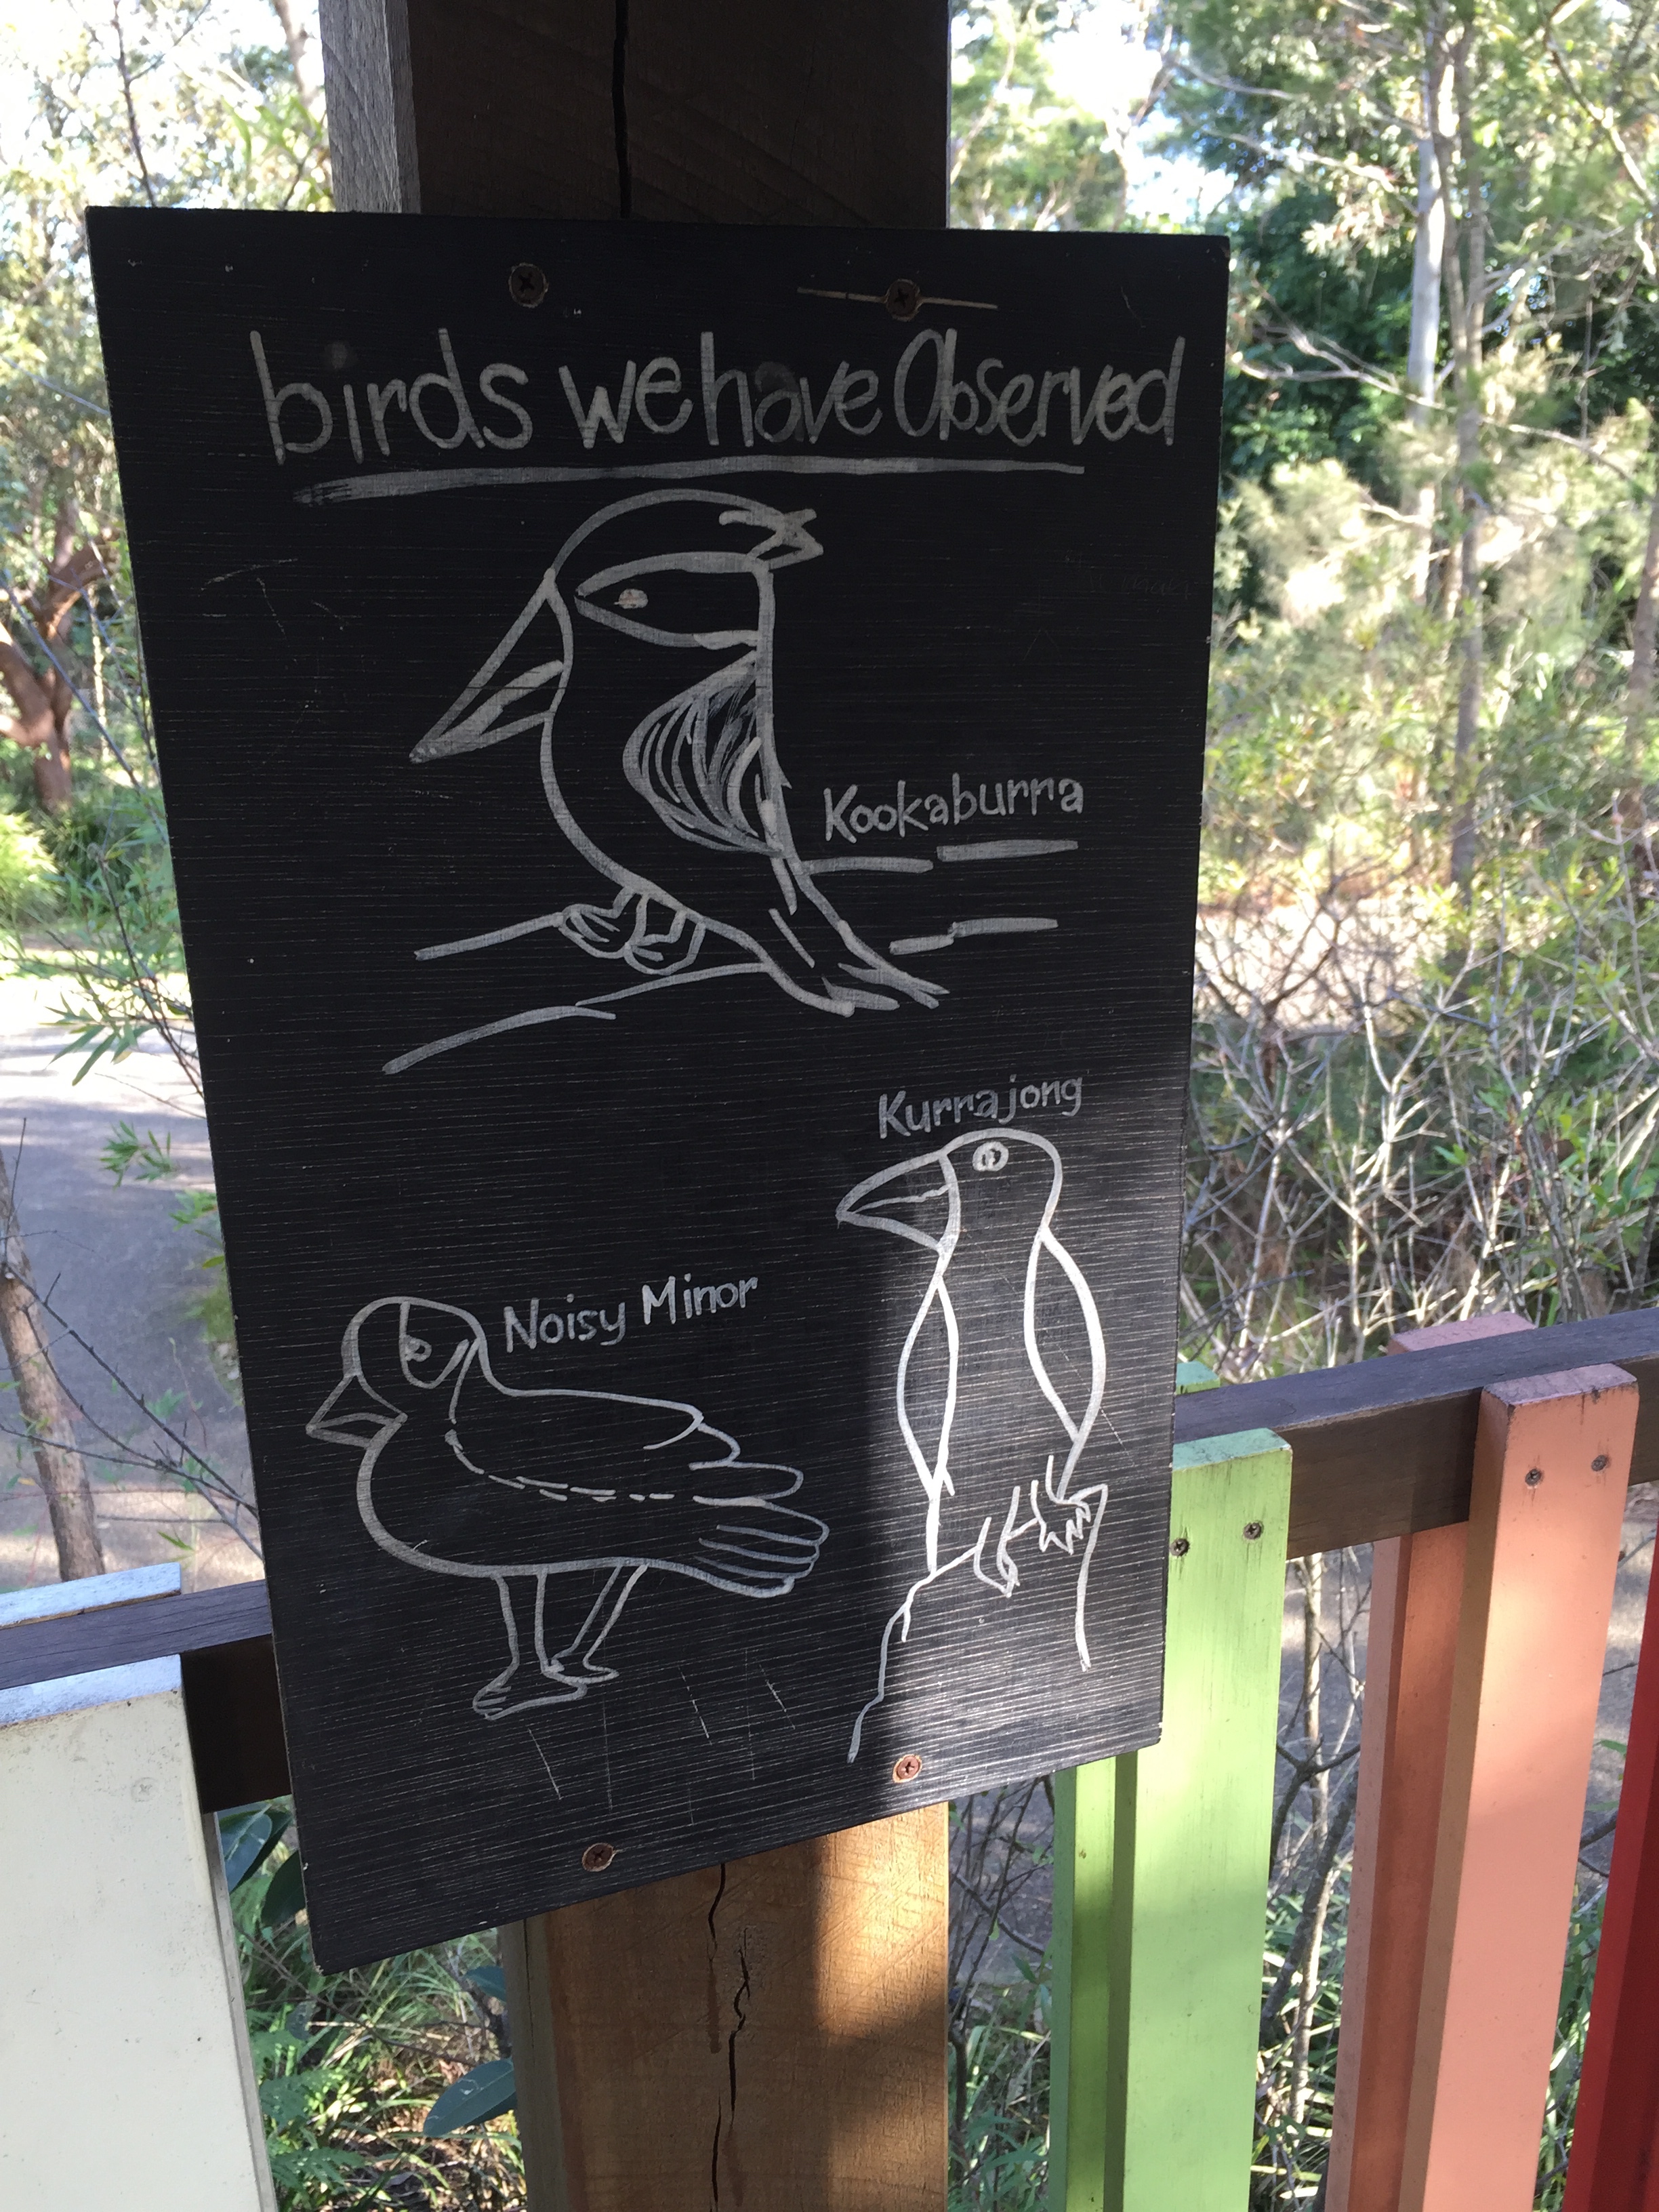 birds we have Observed
Kookaburra
Kurrajong
Noisy Minor